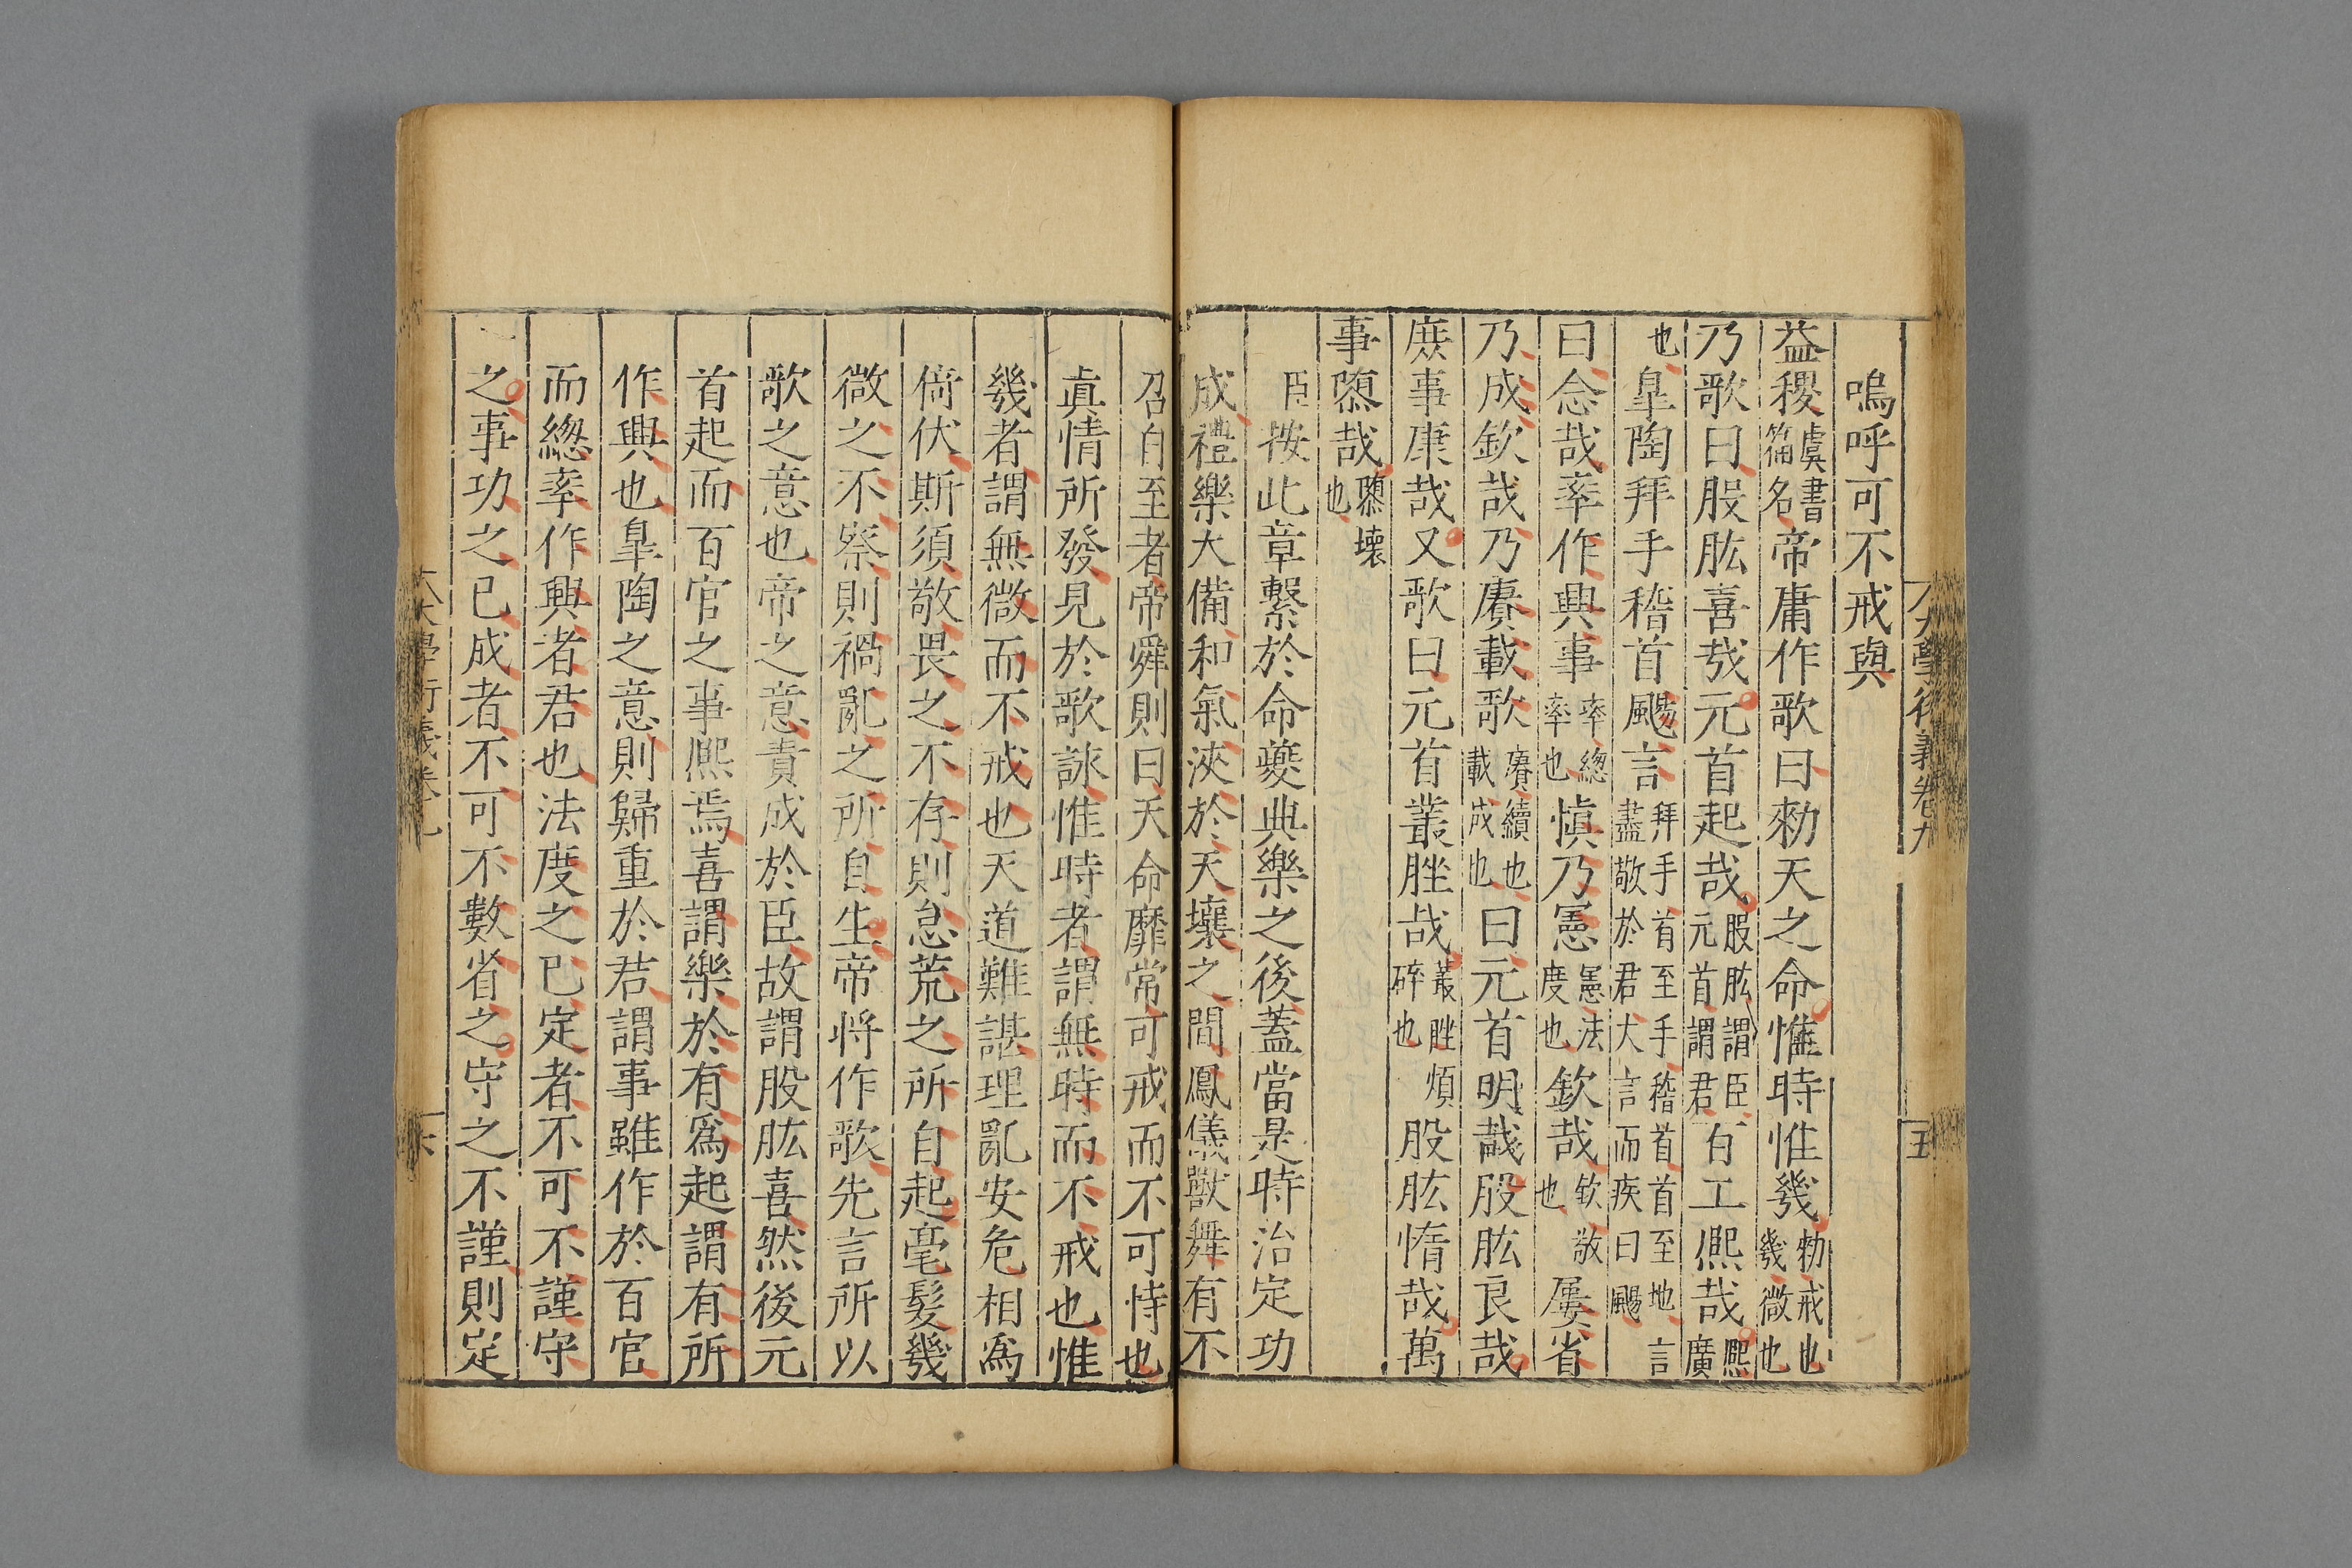 嗚呼可不戒與
益稷虞書篇名帝庸作歌曰勑天之命惟時惟幾勑戒也幾微也
乃歌曰股肱喜哉元首起哉股肱謂臣元首謂君百工熈哉熈廣
也臯陶拜手稽首颺言拜手首至手稽首首至地言盡敬於君大言而疾曰颺
曰念哉率作興事率總率也愼乃憲憲法度也欽哉欽敬也屢省
乃成欽哉乃賡載歌賡續也載成也曰元首明哉股肱良哉
庶事康哉又歌曰元首叢脞哉叢脞煩碎也股肱惰哉萬
事隳哉隳壞也
臣按此章繫於命夔典樂之後蓋當是時治定功
成禮樂大備和氣浹於天壤之間鳳儀獸舞有不
召自至者帝舜則曰天命靡常可戒而不可恃也
眞情所發見於歌詠惟時者謂無時而不戒也惟
幾者謂無微而不戒也天道難諶理亂安危相爲
倚伏斯須敬畏之不存則怠荒之所自起毫髮幾
微之不察則禍亂之所自生帝将作歌先言所以
歌之意也帝之意責成於臣故謂股肱喜然後元
首起而百官之事熈焉喜謂樂於有爲起謂有所
作興也臯陶之意則歸重於君謂事雖作於百官
而緫率作興者君也法度之已定者不可不謹守
之事功之已成者不可不數省之守之不謹則定
大學衍義卷九
五